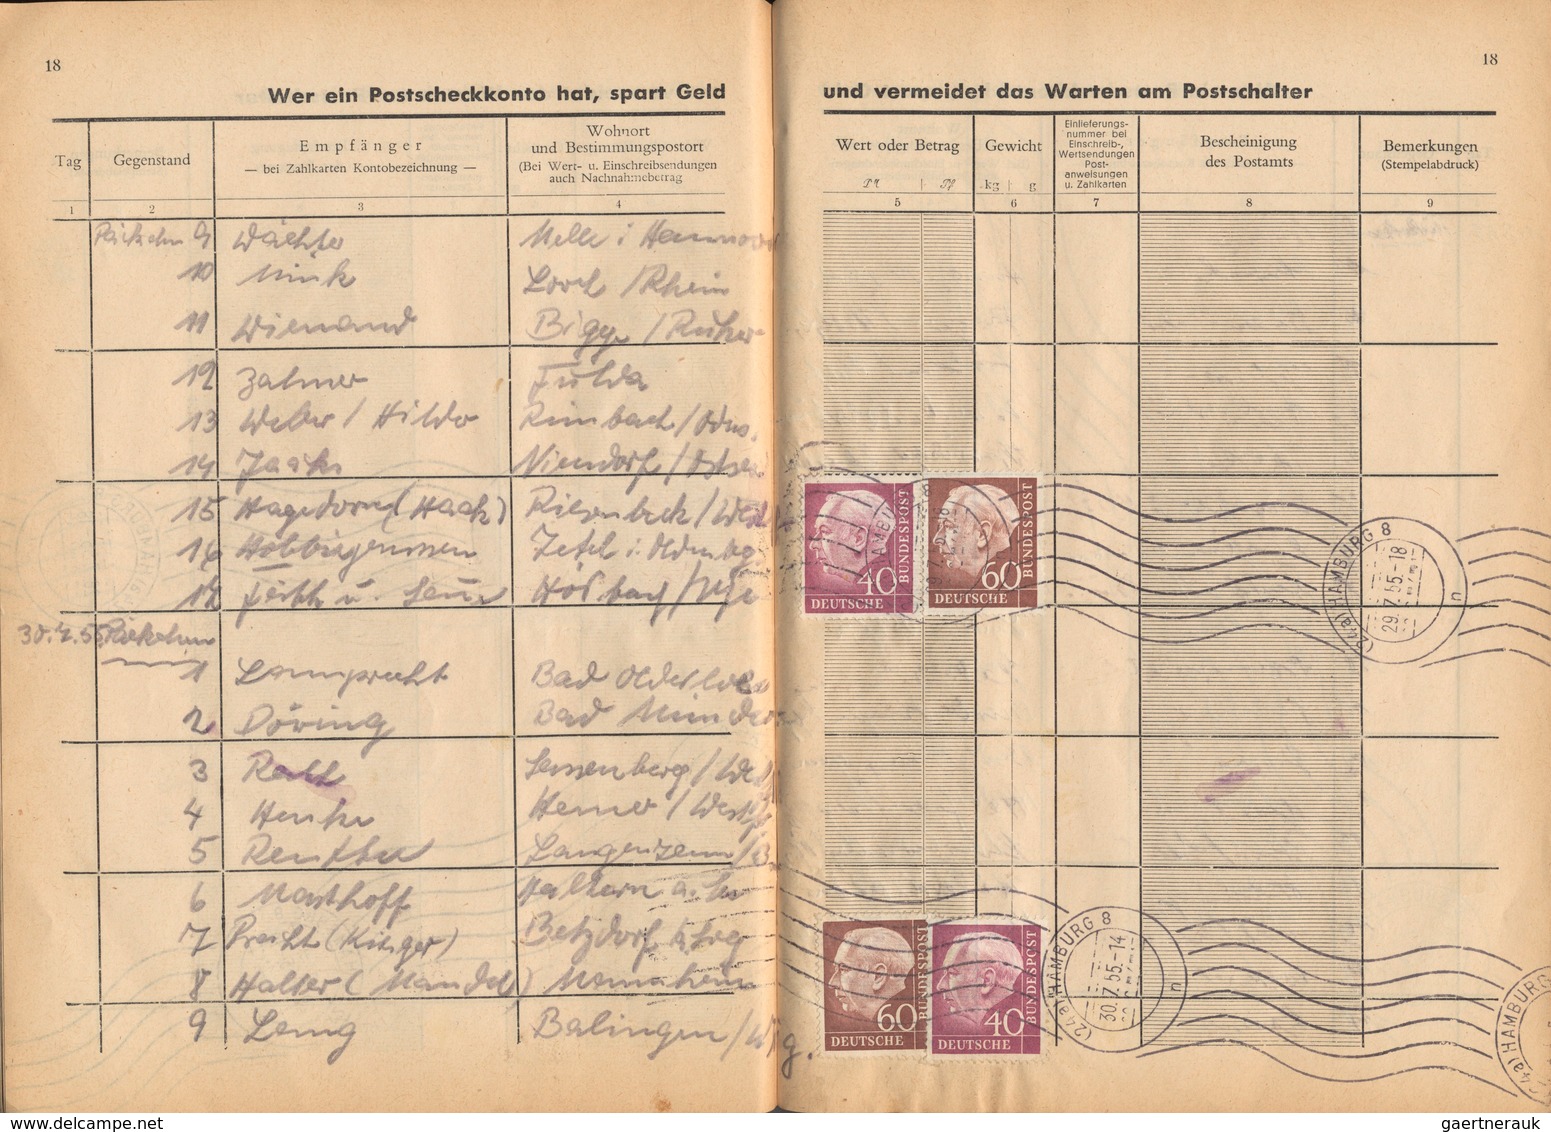 18
18
Wer ein Postscheckkonto hat, spart Geld
und vermeidet das Warten am Postschalter
Tag
Gegenstand
Empfänger
— bei Zahlkarten Kontobezeichnung —
Wohnort
und Bestimmungspostort
(Bei Wert- u. Einschreibsendungen
auch Nachnahmebetrag
Wert oder Betrag
Gewicht
kg g
Einlieferungs-
nummer bei
Einschreib-,
Wertsendungen
Post-
anweisungen
u. Zahlkarten
Bescheinigung
des Postamts
Bemerkungen
(Stempelabdruck)
1 2 3 4 5 6 7 8 9
9 Wächter Melle i Hannover
10 Lorch / Rhein
11 Wienand Bigge / Ruhr
12 Zahner Fulda
13 Weber / Hilde Rimbach / Odw.
14 Niendorf / Ostsee
15 Hagedorn (Haack) Riesenbeck / West
16 Zetel i. Oldenbg
17 Hösbach
30.7.55 Päckchen
1 Lamprecht Bad Oldesloe
2 Döring Bad Münder
3
4 Hemer / Westf
5 Langenzenn / B
6 Masthoff Haltern
7 Precht Betzdorf
8 Halter ( Mandel) Mannheim
9 Lang Balingen / Wg.
40
DEUTSCHE
BUNDESPOST
60
DEUTSCHE
BUNDESPOST
(24a) HAMBURG 8
29.7.55.-18
n
60
DEUTSCHE
BUNDESPOST
40
DEUTSCHE
BUNDESPOST
(24a) HAMBURG 8
30.7.55.-14
n
HAMBURG
gaertnerauk